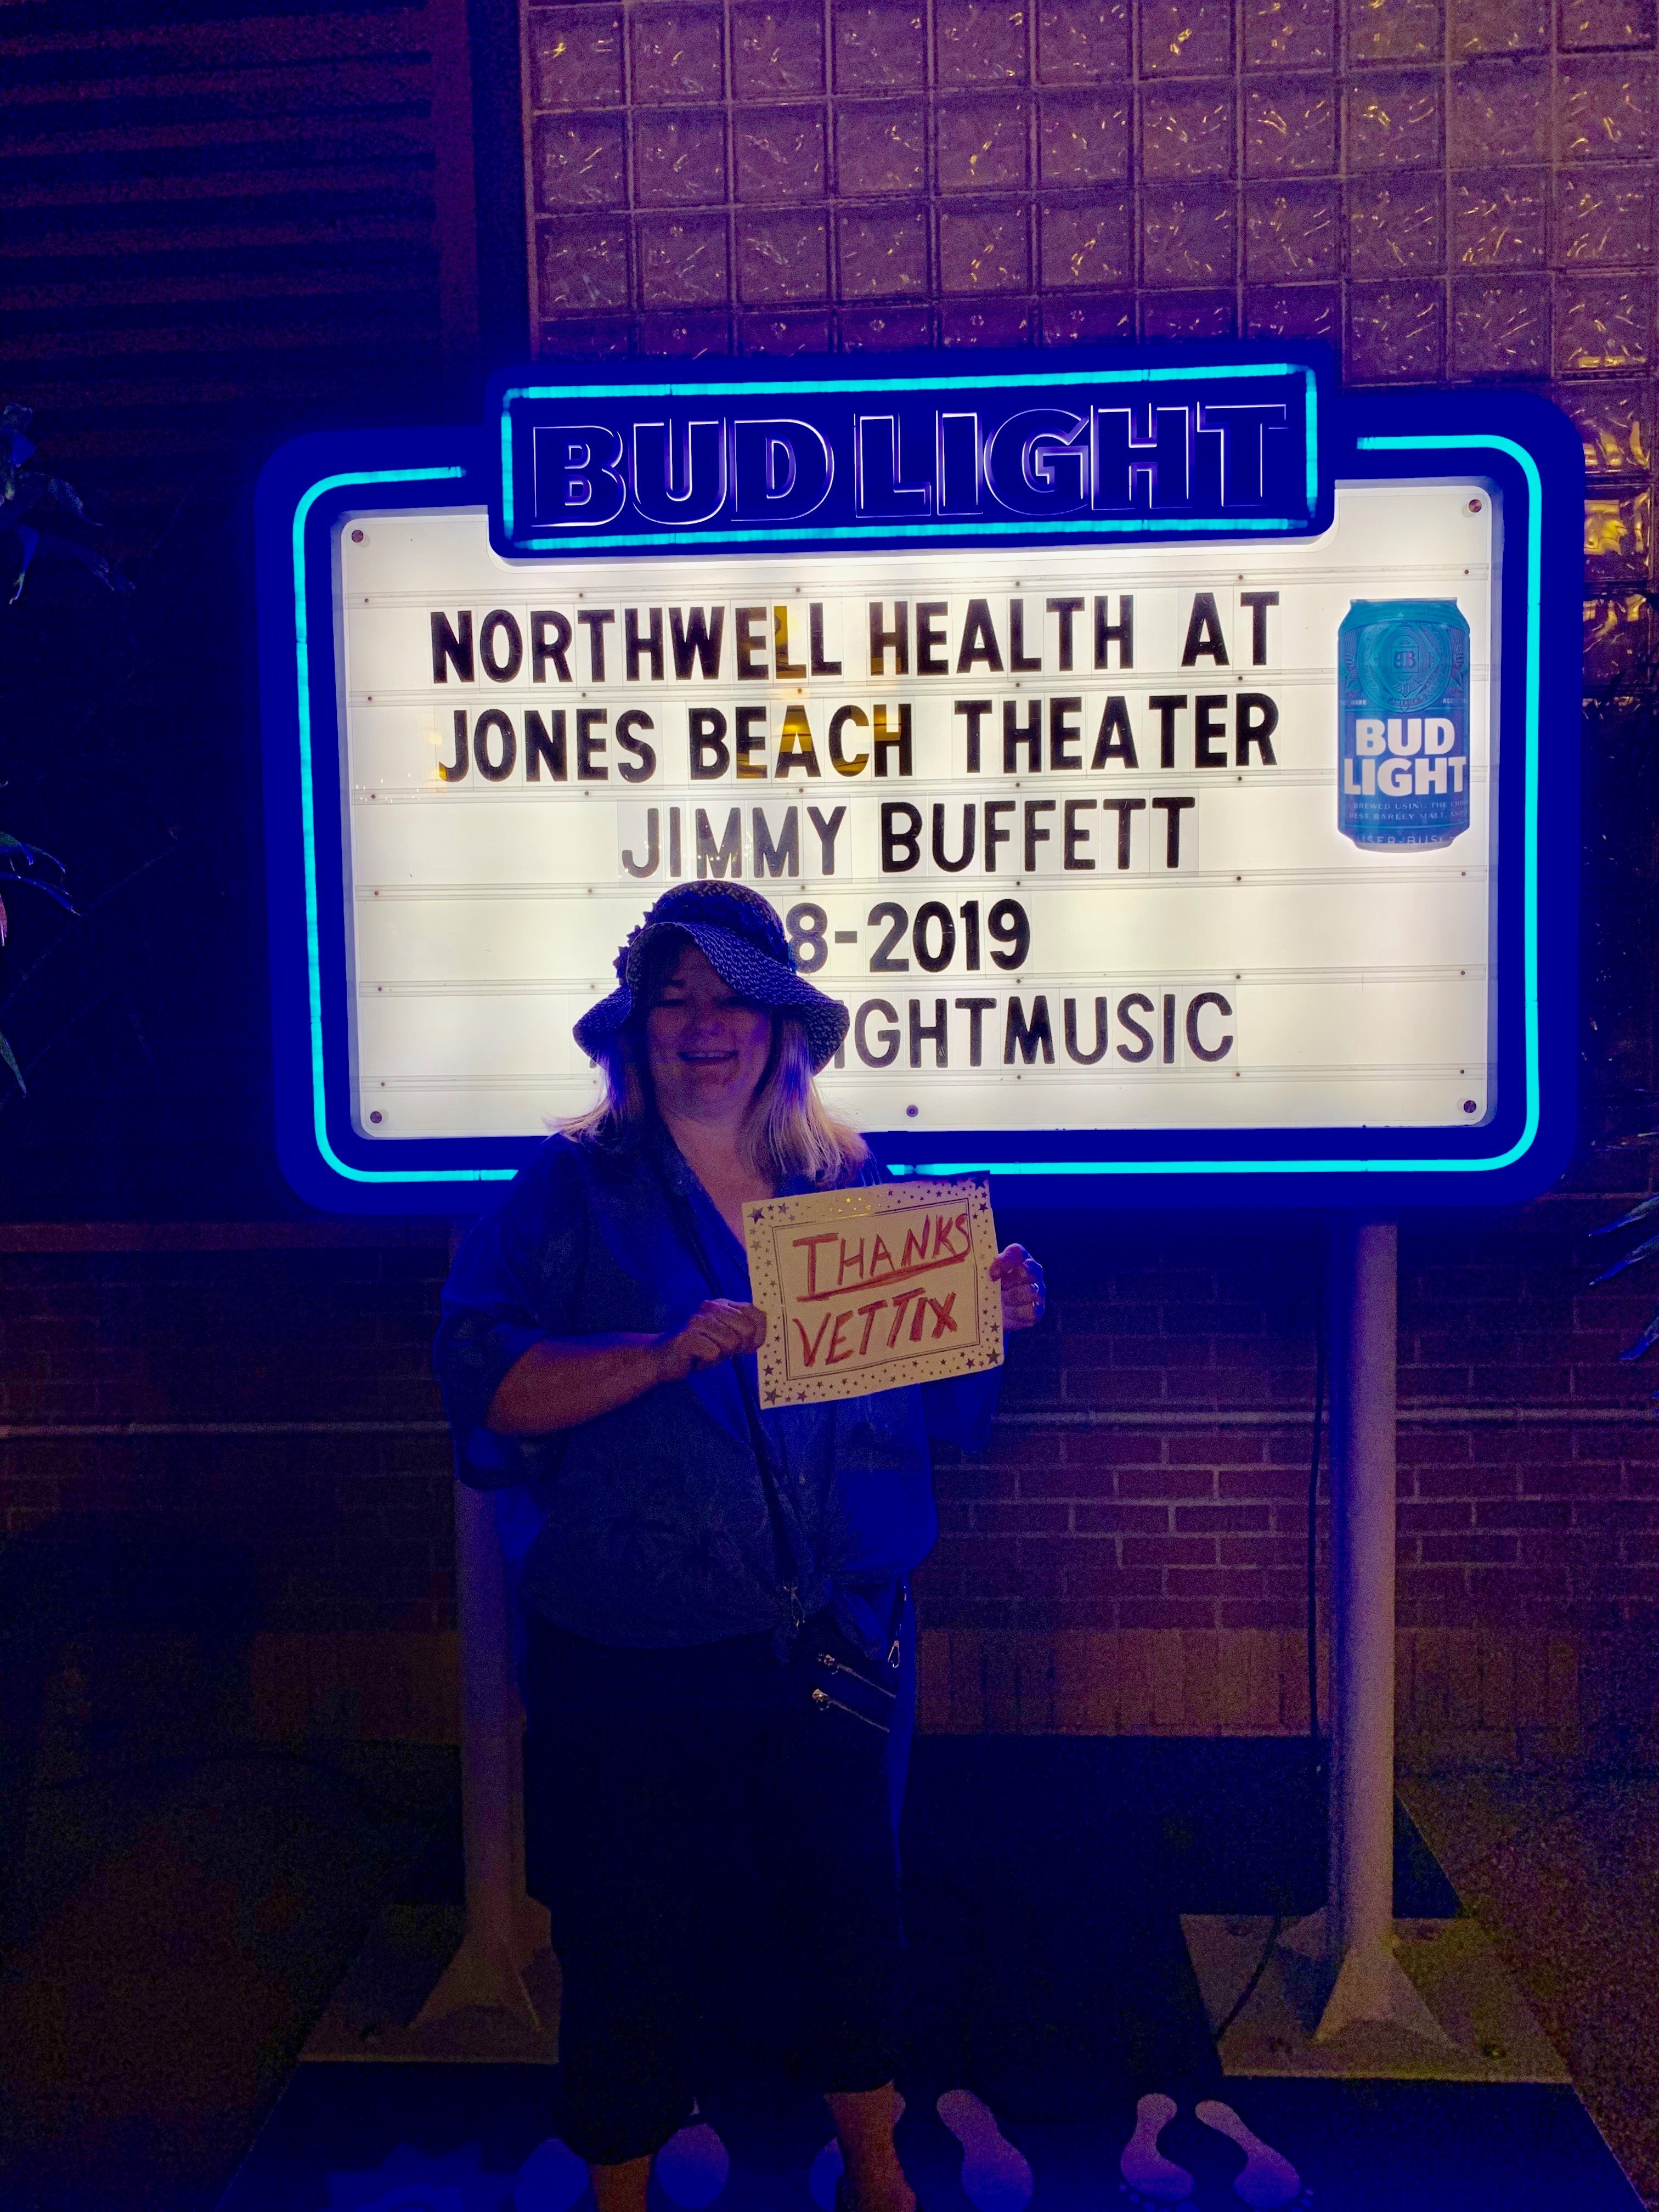 BUD LIGHT
NORTHWELL HEALTH AT
JONES BEACH THEATER
JIMMY BUFFETT
8-2019
IGHTMUSIC
BUD
LIGHT
BREWED USING THE
BEST BARLEY MALT,
THANKS
VETTIX